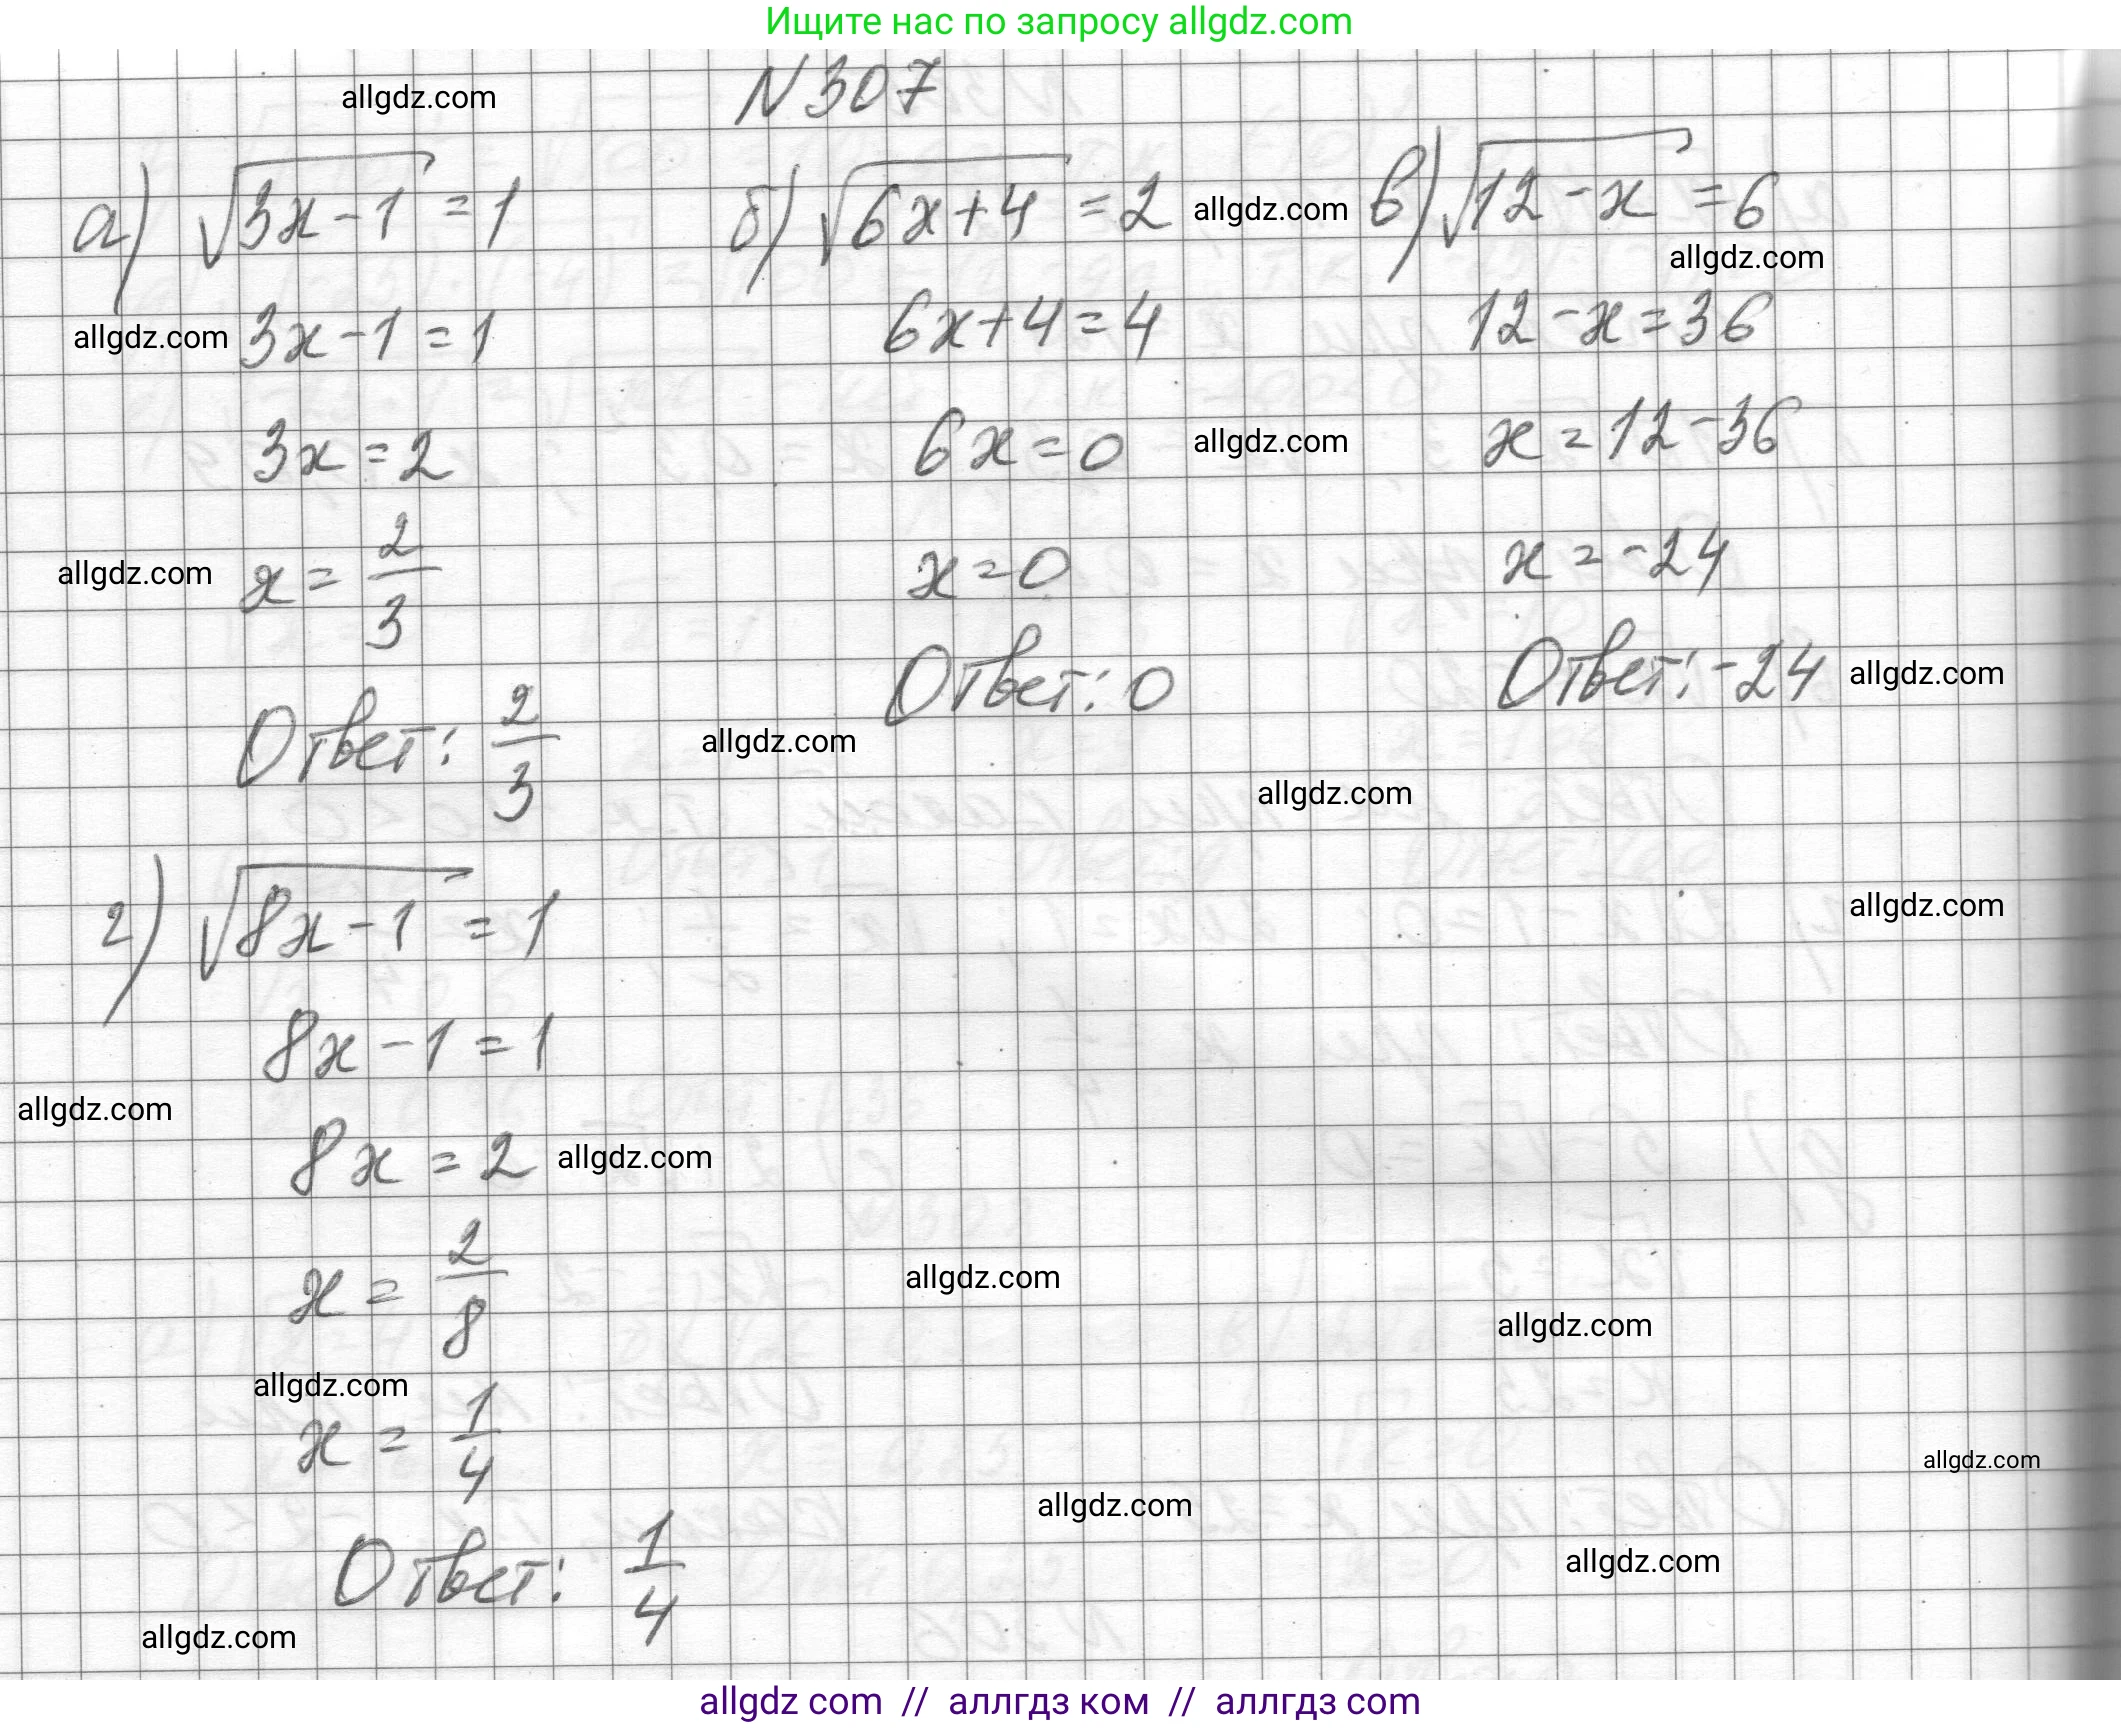 Ищите нас по запросу allgdz.com
allgdz.com
N 307
а) √(3x-1) = 1
б) √(6x+4) = 2
allgdz.com
в) √(12-x) = 6
allgdz.com
allgdz.com
3x-1=1
6x+4=4
12-x=36
3x=2
6x=0
allgdz.com
x=12-36
allgdz.com
x = 2/3
x=0
x=-24
Ответ: 2/3
allgdz.com
Ответ: 0
Ответ: -24
allgdz.com
allgdz.com
г) √(8x-1) = 1
allgdz.com
8x-1=1
allgdz.com
8x=2
allgdz.com
x = 2/8
allgdz.com
allgdz.com
allgdz.com
x = 1/4
allgdz.com
allgdz.com
Ответ: 1/4
allgdz.com
allgdz.com
allgdz com // аллгдз ком // аллгдз com